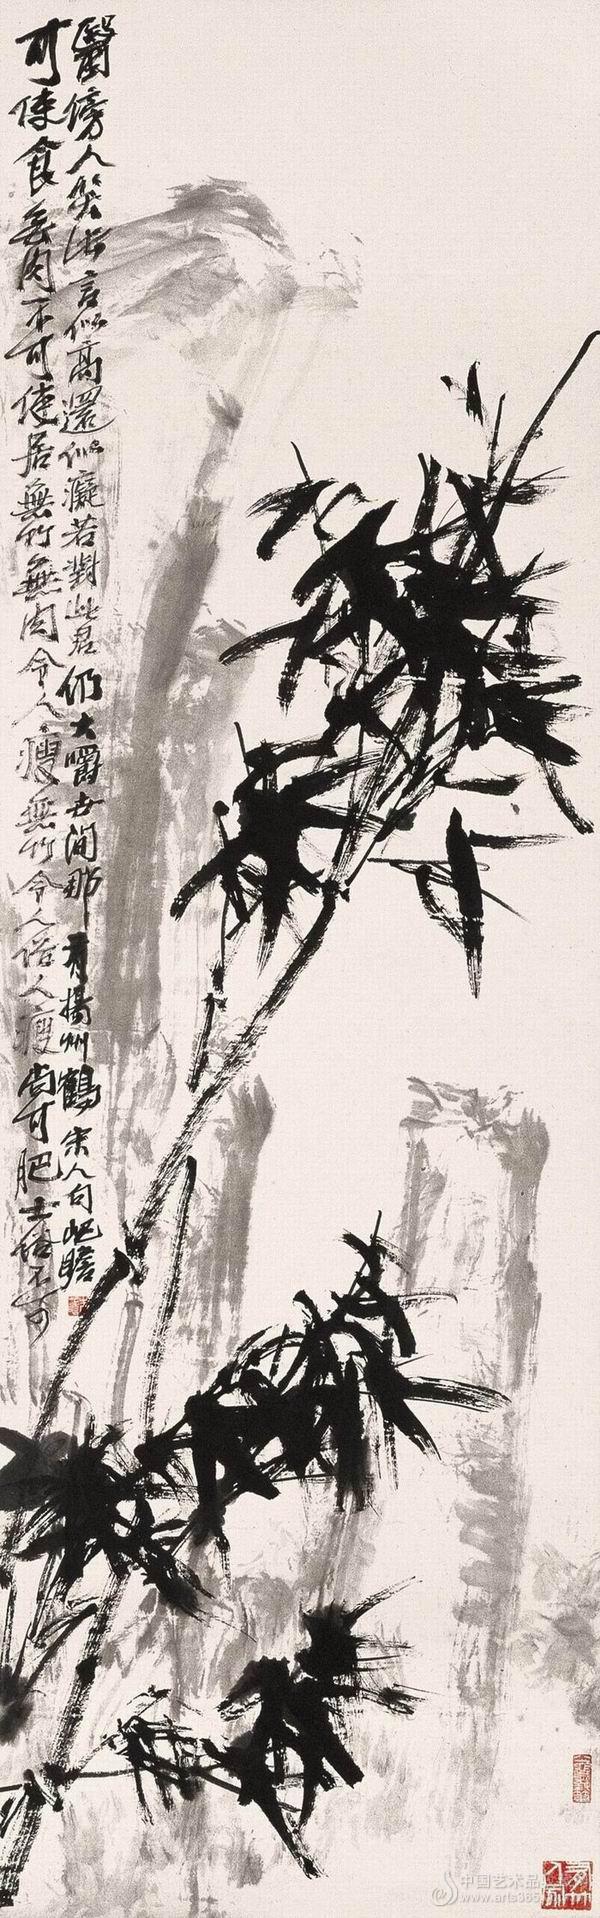 可使食无肉不可使居無竹無肉令人瘦無竹令人俗人瘦尚可肥士俗不可
醫傍人笑此言似高還似癡若對此君仍大嚼世間那有揚州鶴 宋人句 屺瞻
中国艺术品
www.arts365